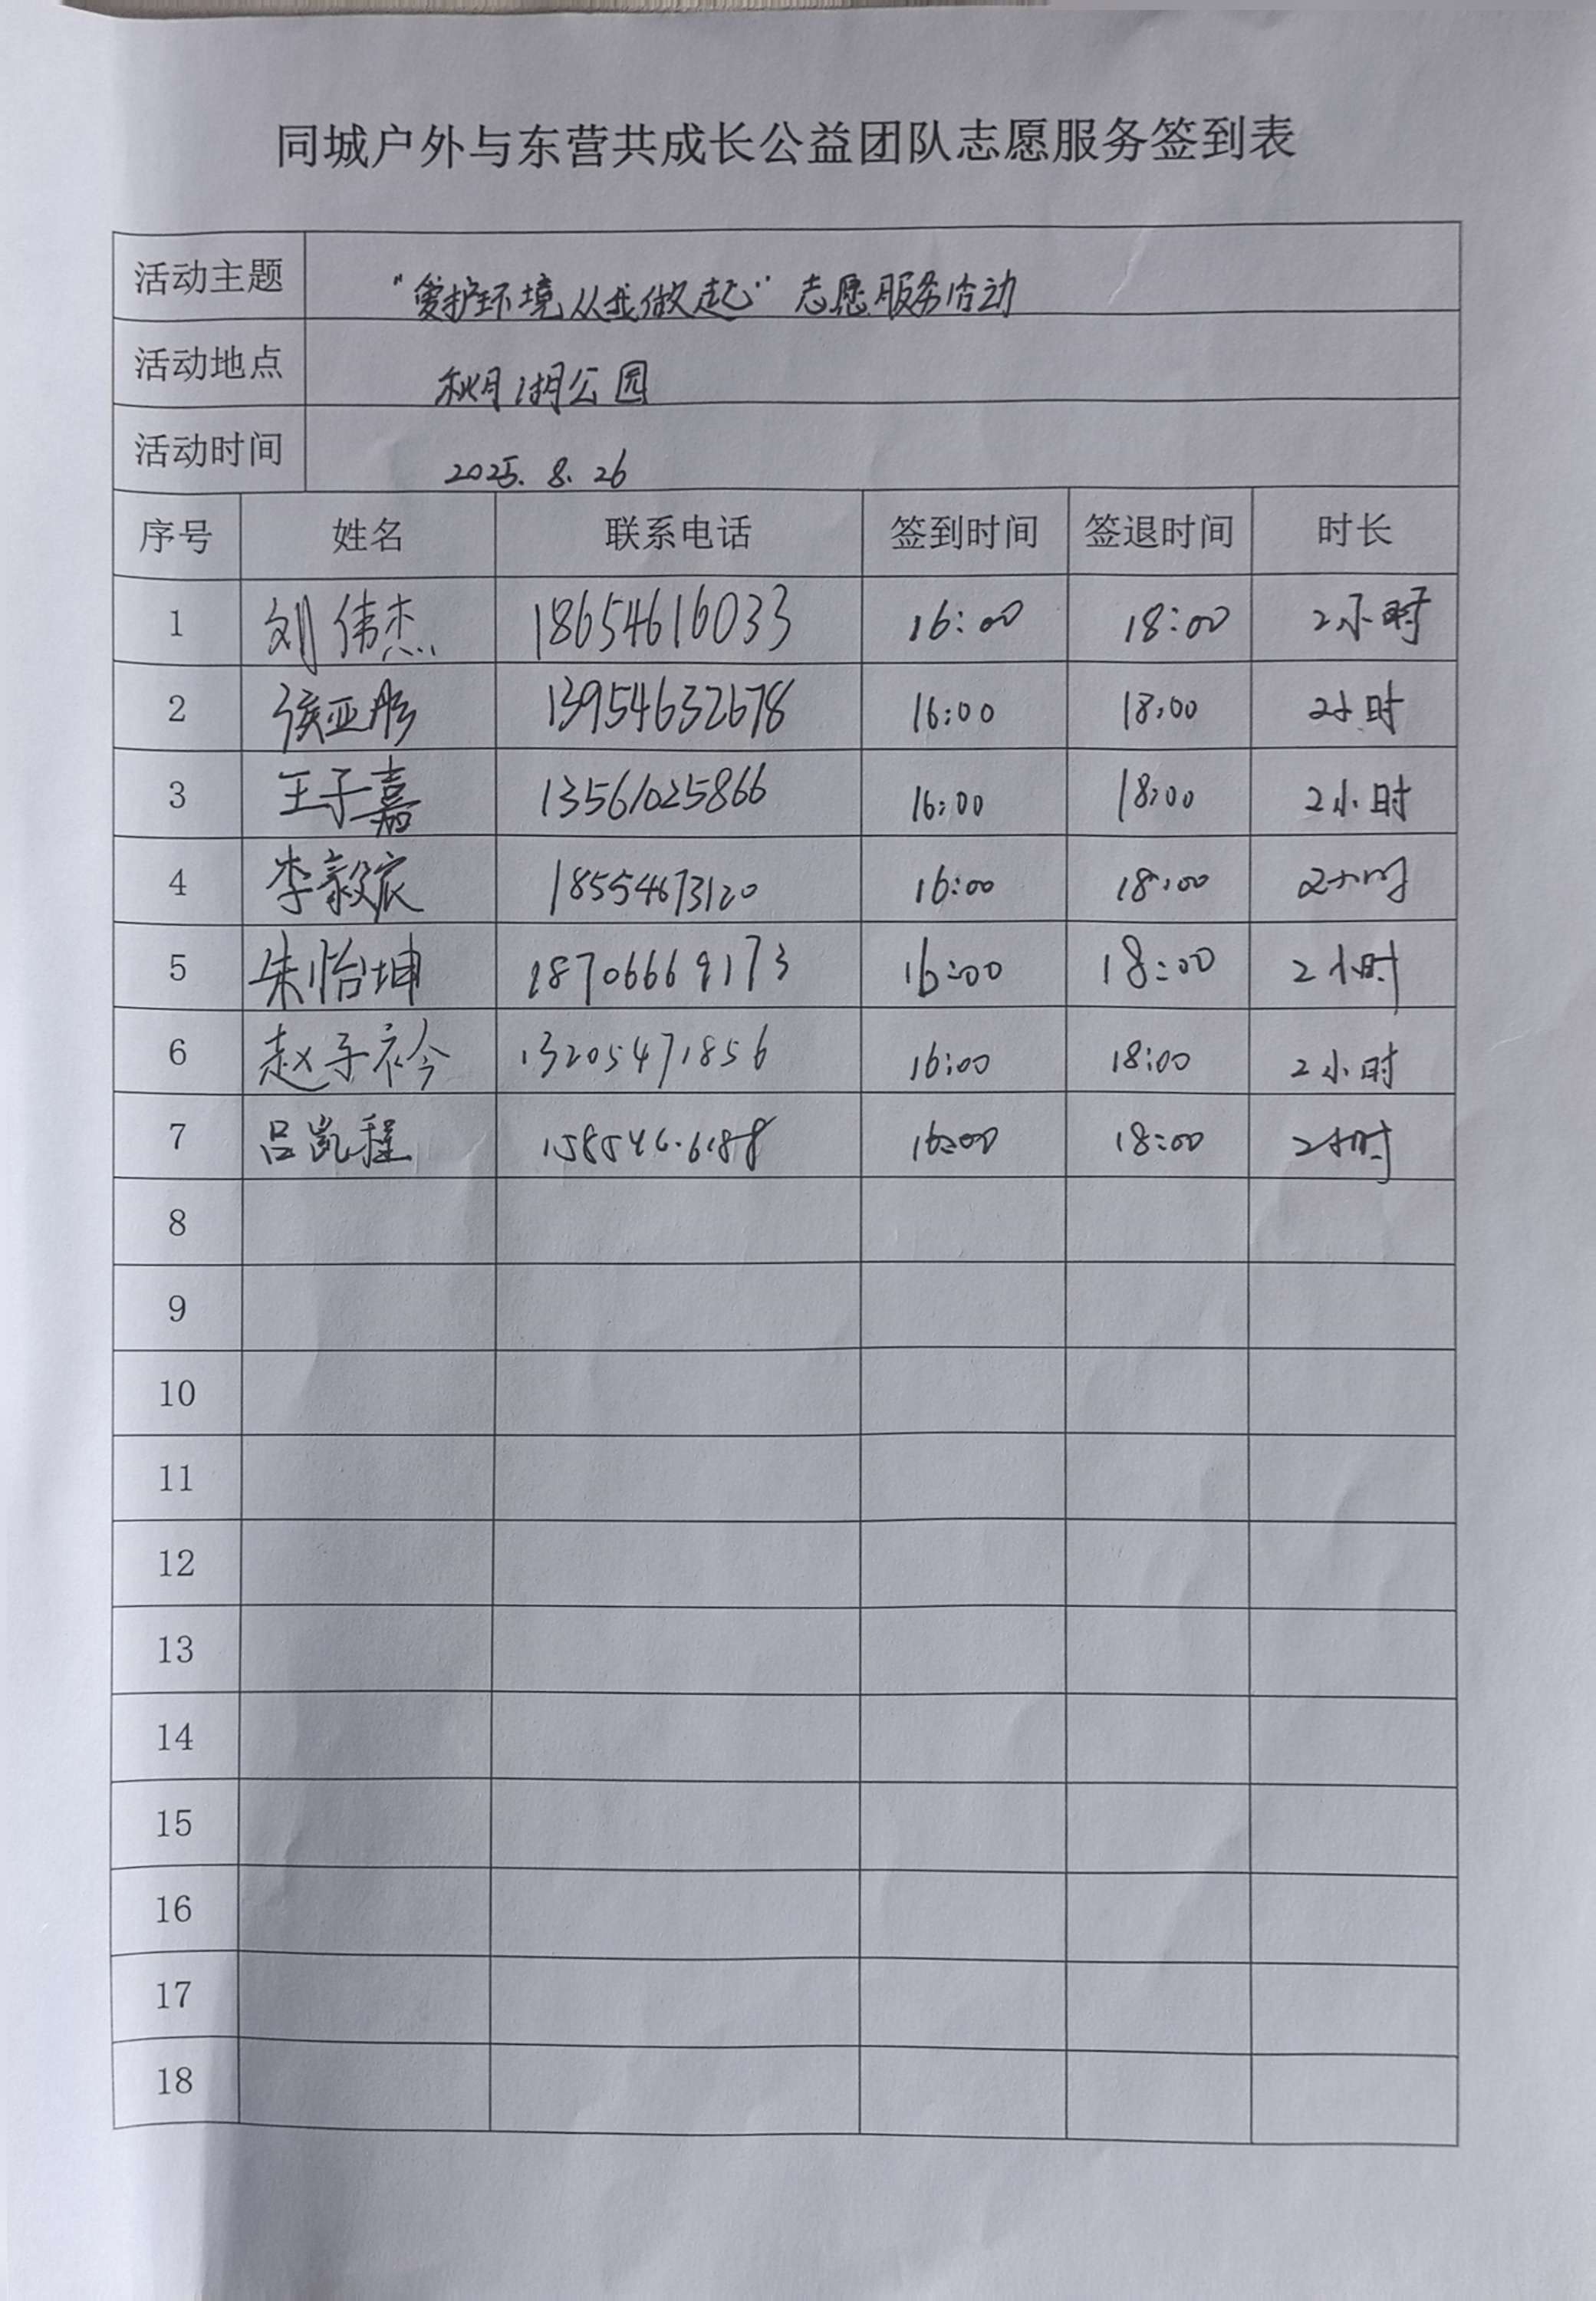 同城户外与东营共成长公益团队志愿服务签到表
活动主题 "爱护环境从我做起" 志愿服务活动
活动地点 秋月湖公园
活动时间 2025.8.26
序号 姓名 联系电话 签到时间 签退时间 时长
1 刘伟杰 18654616033 16:00 18:00 2小时
2 侯亚彤 13954632678 16:00 18:00 2小时
3 王子嘉 13561025866 16:00 18:00 2小时
4 李毅宸 18554673120 16:00 18:00 2小时
5 朱怡坤 18706669173 16:00 18:00 2小时
6 赵子衿 13205471856 16:00 18:00 2小时
7 吕凯程 16:00 18:00 2小时
8
9
10
11
12
13
14
15
16
17
18